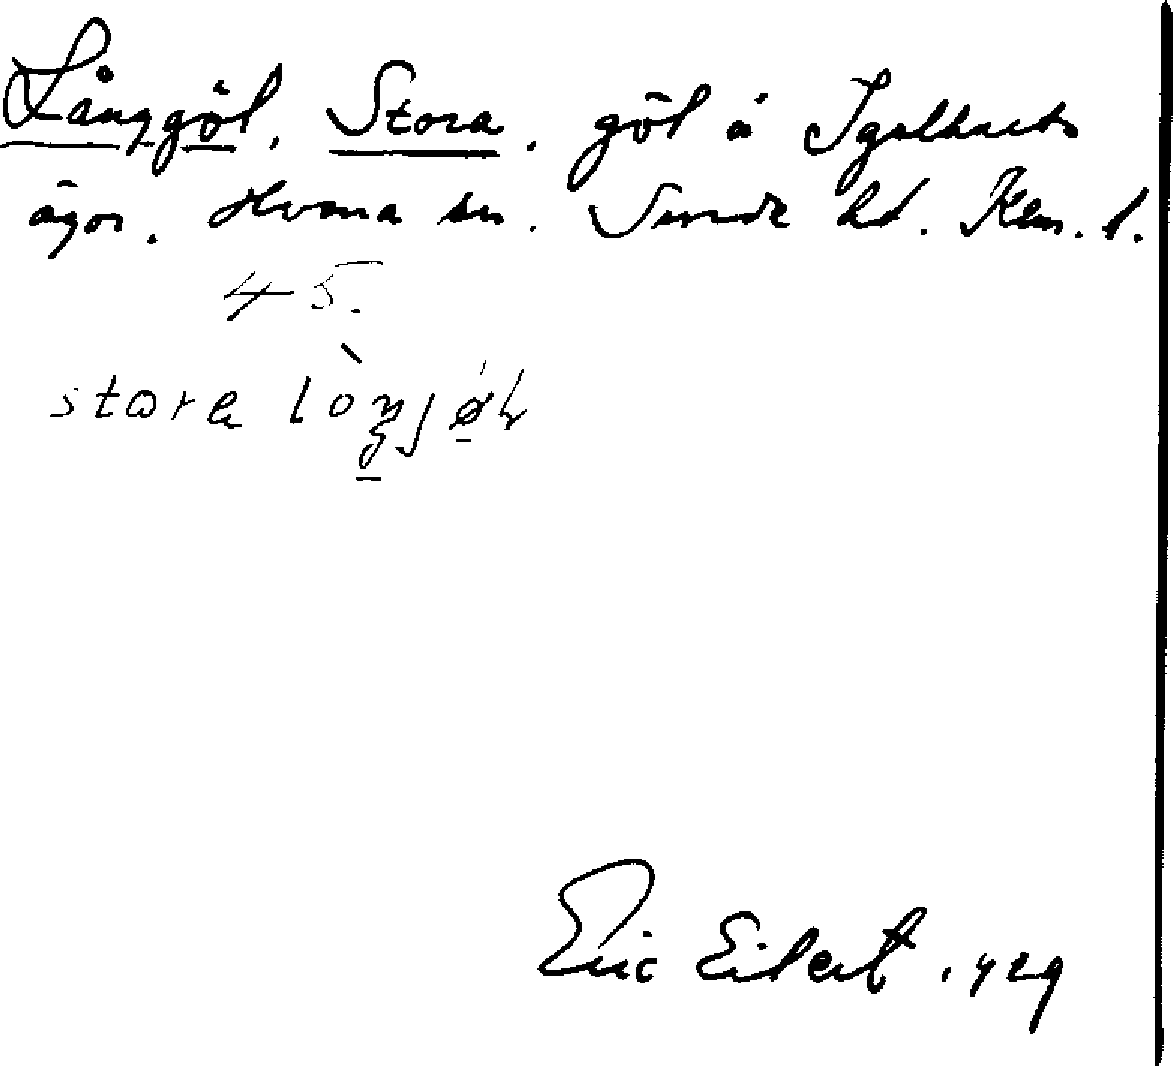 Långgöl, Stora. göl å Igelhults
ägor. Hvena sn. Sevede hd. Klm. l.
45.
stora lòŋjøl
Eric Eilert 1929